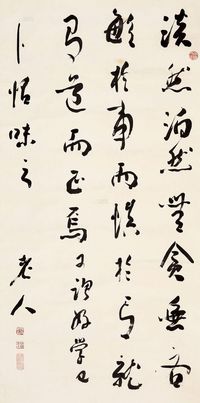 淡然泊然無貪無吝
敏於事而慎於言就
有道而正焉可謂好学也
味
老人